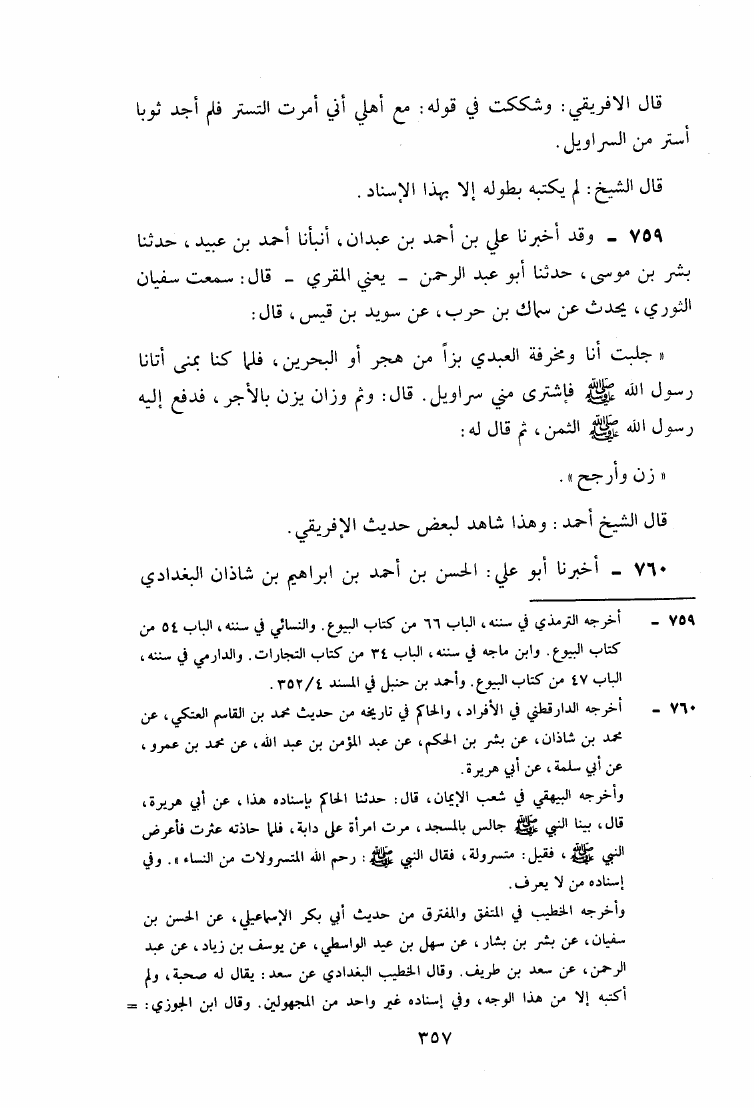 قال الافريقي: وشككت في قوله: مع أهلي أني أمرت التستر فلم أجد ثوبا
أستر من السراويل.
قال الشيخ: لم يكتبه بطوله إلا بهذا الإسناد.
٧٥٩ - وقد أخبرنا علي بن أحمد بن عبدان، أنبأنا أحمد بن عبيد، حدثنا
بشر بن موسى، حدثنا أبو عبد الرحمن - يعني المقري - قال: سمعت سفيان
الثوري، يحدث عن سماك بن حرب، عن سويد بن قيس، قال:
« جلبت أنا ومخرفة العبدي بزاً من هجر أو البحرين، فلما كنا بمنى أتانا
رسول الله ﷺ فإشترى مني سراويل. قال: وثم وزان يزن بالأجر، فدفع إليه
رسول الله ﷺ الثمن، ثم قال له:
« زن وأرجح ».
قال الشيخ أحمد: وهذا شاهد لبعض حديث الإفريقي.
٧٦٠ - أخبرنا أبو علي: الحسن بن أحمد بن ابراهيم بن شاذان البغدادي
٧٥٩ - أخرجه الترمذي في سننه، الباب ٦٦ من كتاب البيوع. والنسائي في سننه، الباب ٥٤ من
كتاب البيوع. وابن ماجه في سننه، الباب ٣٤ من كتاب التجارات. والدارمي في سننه،
الباب ٤٧ من كتاب البيوع. وأحمد بن حنبل في المسند ٣٥٢/٤.
٧٦٠ - أخرجه الدارقطني في الأفراد، والحاكم في تاريخه من حديث محمد بن القاسم العتكي، عن
محمد بن شاذان، عن بشر بن الحكم، عن عبد المؤمن بن عبد الله، عن محمد بن عمرو،
عن أبي سلمة، عن أبي هريرة.
وأخرجه البيهقي في شعب الإيمان، قال: حدثنا الحاكم بإسناده هذا، عن أبي هريرة،
قال، بينا النبي ﷺ جالس بالمسجد، مرت امرأة على دابة، فلما حاذته عثرت فأعرض
النبي ﷺ، فقيل: متسرولة، فقال النبي ﷺ: رحم الله المتسرولات من النساء ». وفي
إسناده من لا يعرف.
وأخرجه الخطيب في المتفق والمفترق من حديث أبي بكر الإسماعيلي، عن الحسن بن
سفيان، عن بشر بن بشار، عن سهل بن عيد الواسطي، عن يوسف بن زياد، عن عبد
الرحمن، عن سعد بن طريف. وقال الخطيب البغدادي عن سعد: يقال له صحبة، ولم
أكتبه إلا من هذا الوجه، وفي إسناده غير واحد من المجهولين. وقال ابن الجوزي: =
٣٥٧